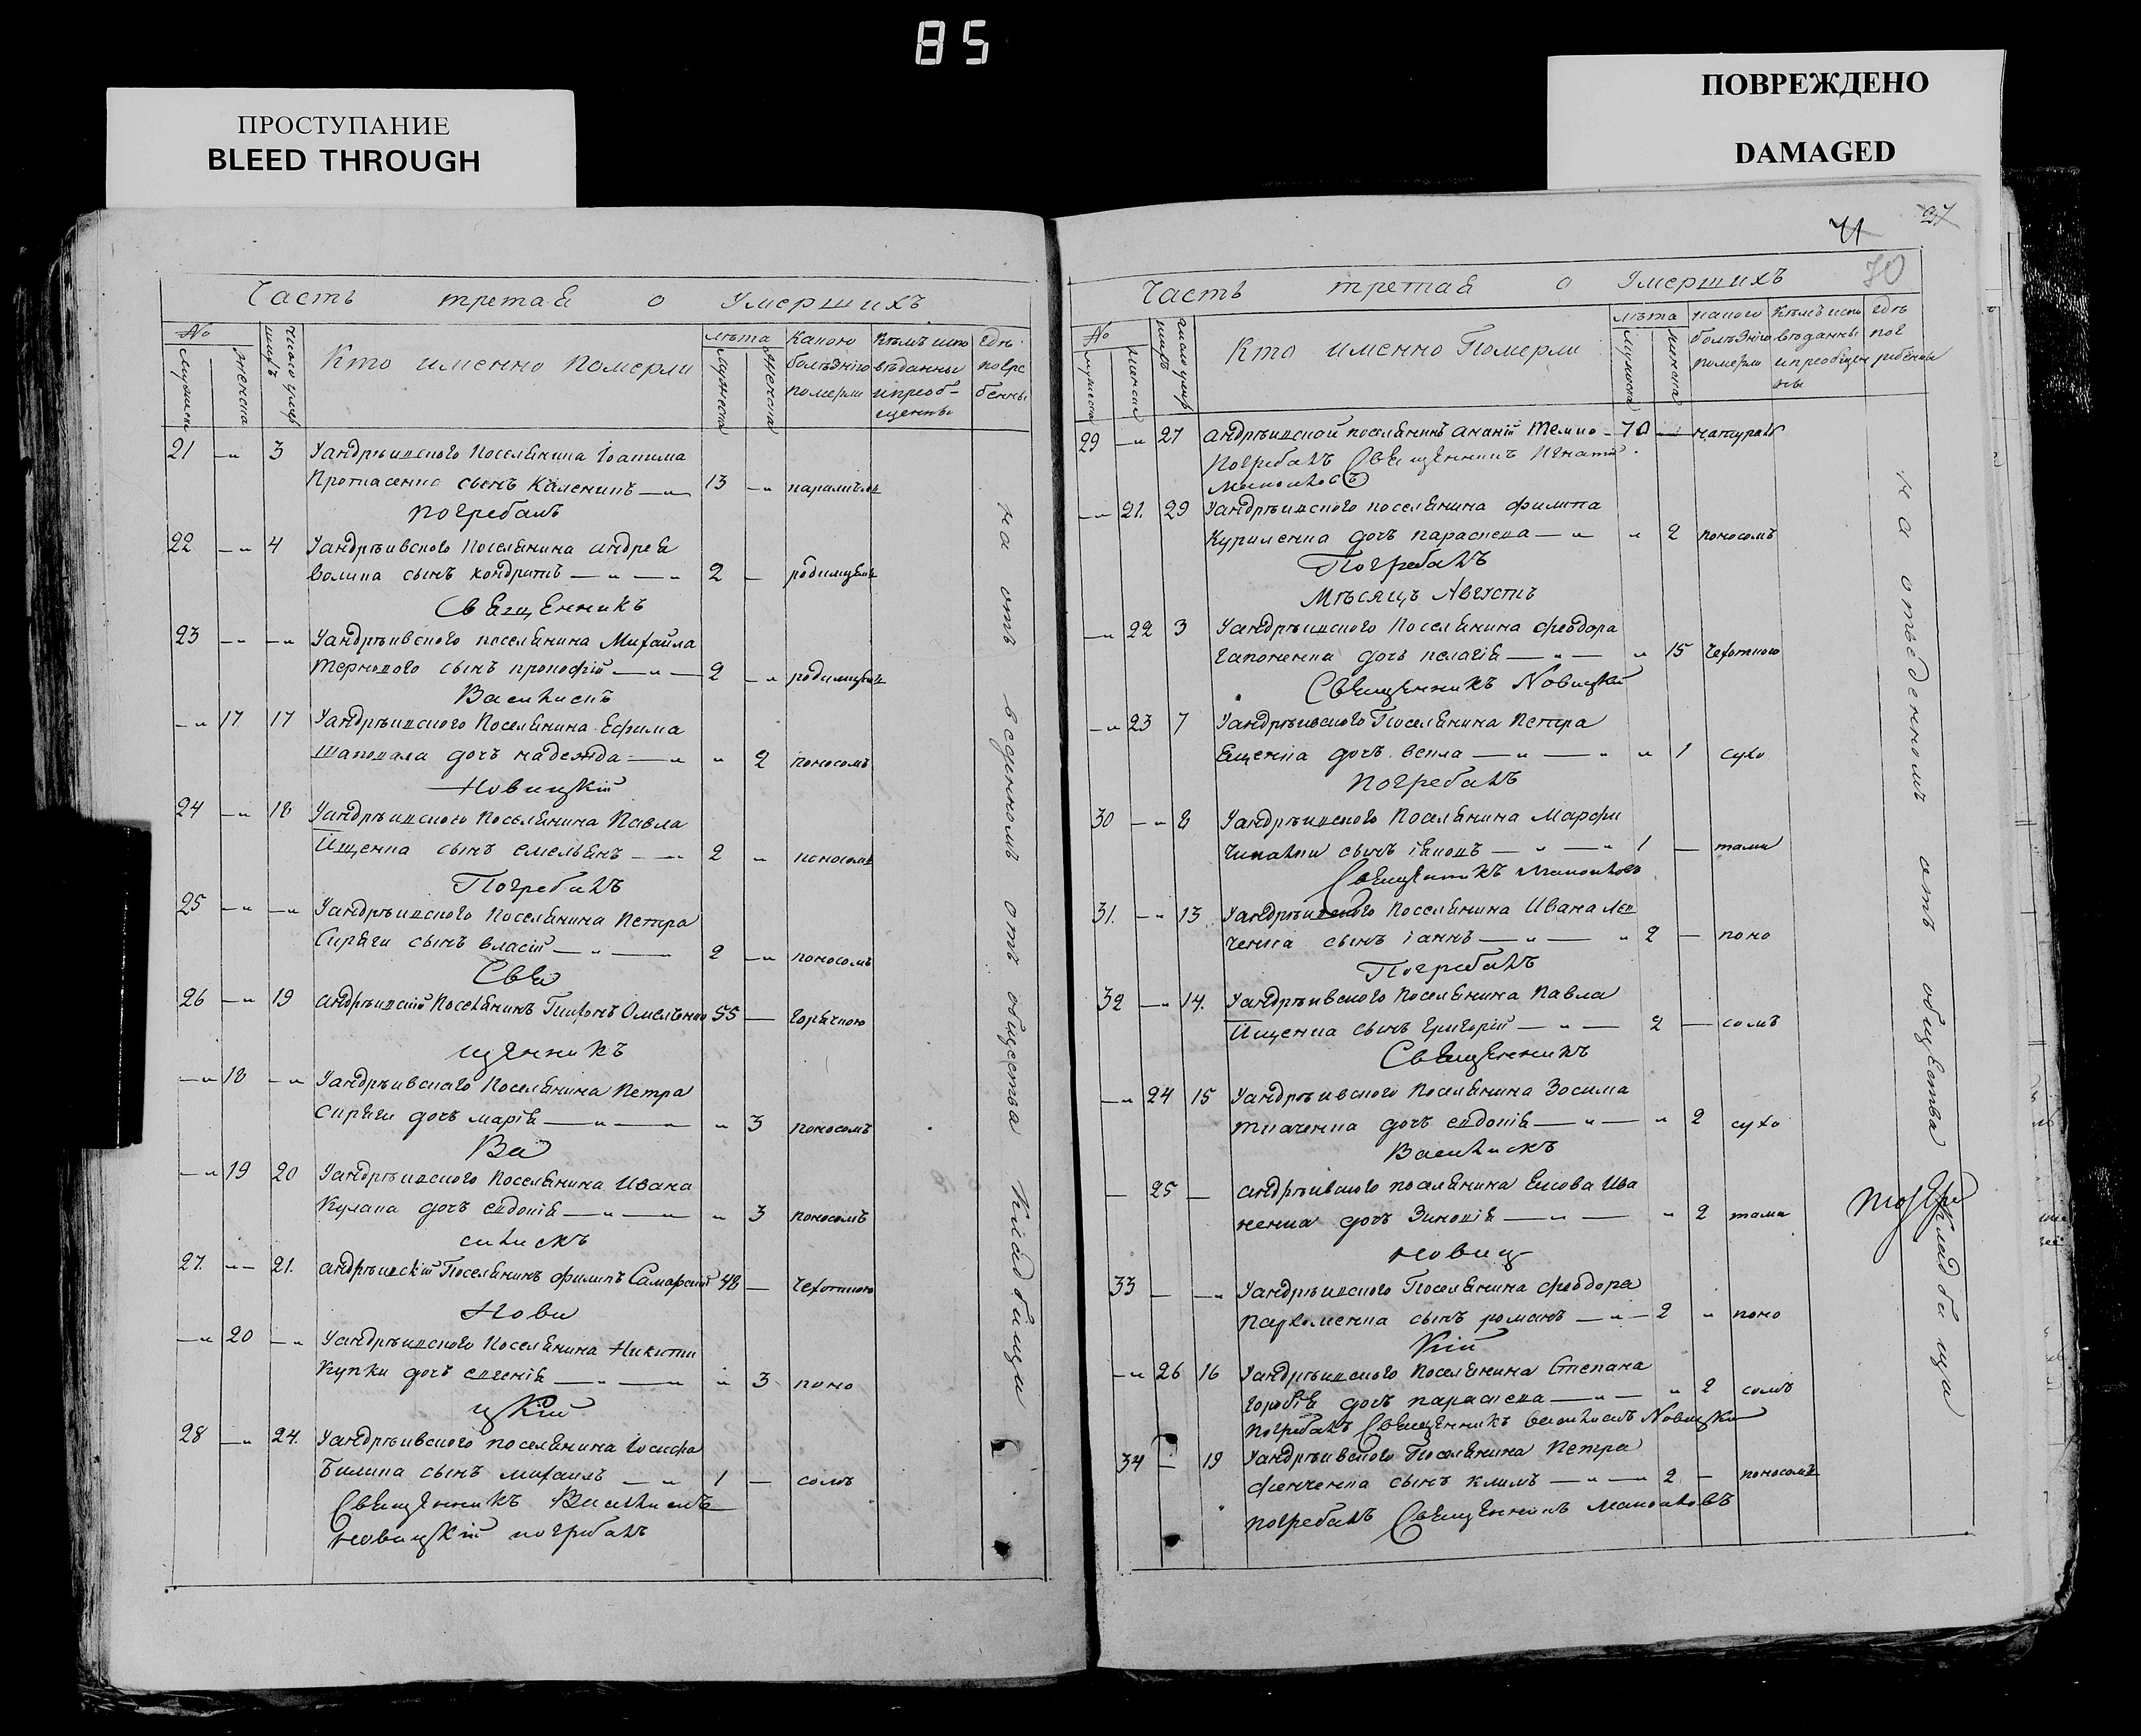 85
ПРОСТУПАНИЕ
BLEED THROUGH
ПОВРЕЖДЕНО
DAMAGED
Часть третая о Умершихъ
№ Число умершихъ Кто именно померли лѣта Какою Кѣмъ испо гдѣ
Мужеска Женска Мужеска Женска болѣзнію вѣданы погре
померли и преоб- бенны
щенны
21 —„ 3 Уандрѣивского Поселянина Іоакима
Протасенка сынъ Каленикъ —„— 13 —„ параличъ
погребалъ
22 —„ 4 Уандрѣивского Поселянина андрея
волика сынъ кондратъ —„—„ 2 — родимцемъ
Священникъ
23 —„ —„ Уандрѣивского поселянина Михаила
тернового сынъ прокофій —„— 2 —„ родимцемъ
Василискъ
—„ 17 17 Уандрѣивского Поселянина Ефима
шаповала дочъ надежда —„ „ 2 поносомъ
Новицкій
24 —„ 18 Уандрѣивского Поселянина Павла
Ищенка сынъ емельянъ —„ 2 „ поносомъ
Погребалъ
25 —„ —„ Уандрѣивского Поселянина Петра
Сиряги сынъ власій —„— 2 —„ поносомъ
Свя
26 —„ 19 андрѣивскій Поселянинъ Тихонъ Омеленко 55 — горячкою
щенникъ
—„ 18 —„ Уандрѣивского Поселянина Петра
сиряги дочъ марія —„— „ 3 поносомъ
Ва
—„ 19 20 Уандрѣивского Поселянина Ивана
Кулака дочъ евдокія —„—„ „ 3 поносомъ
силискъ
27. —„ 21. андрѣивскій Поселянинъ филипъ Самарскій 48 — чехоткою
Нови
—„ 20 —„ Уандрѣивского Поселянина Никиты
Купки дочъ евгенія —„—„ „ 3 поно
цкій
28 —„ 24. Уандрѣивского поселянина Іосифа
Билика сынъ михаилъ —„ 1 — сомъ
Священникъ Василискъ
новицкій погребалъ
на отъ веденномъ отъ общества кладбищи
71 37
70
Часть третая о Умершихъ
№ число умершихъ Кто именно Померли лѣта какого Кѣмъ испо гдѣ
мужеска женска Мужеска женска болѣзнію вѣданны пог
померли и преобщен ребенны
ны
29 —„ 27 андрѣивской поселянинъ ананій 70 — натурал
Погребалъ Священникъ Игнатій
Манойловъ
—„ 21. 29 Уандрѣивского поселянина филипа
Куриленка дочъ параскева —„ „ 2 поносомъ
Погребалъ
Мѣсяцъ Августъ
—„ 22 3 Уандрѣивского Поселянина феодора
гапоненка дочъ пелагія —„— „ 15 чехоткою
Священникъ Новицкій
—„ 23 7 Уандрѣивского Поселянина Петра
Ященка дочъ векла —„—„ „ 1 сухо
погребалъ
30 —„ 8 Уандрѣивского Поселянина Марфи
сынъ іяковъ —„—„ 1 — тами
Священникъ Манойловъ
31. —„ 13 Уандрѣивского Поселянина Ивана Лев
ченка сынъ іаннъ —„—„ 2 — поно
Погребалъ
32 —„ 14. Уандрѣивского Поселянина Павла
Ищенка сынъ григорій —„— 2 — сомъ
Священникъ
—„ 24 15 Уандрѣивского Поселянина Зосима
ткаченка дочъ евдокія —„— „ 2 сухо
Василискъ
— 25 — андрѣивского поселянина Якова Ива
ненка дочъ Зиновія —„— „ 2 тами
новиц
33 — —„ Уандрѣивского Поселянина феодора
пархоменка сынъ романъ —„— 2 „ поно
Кій
—„ 26 16 Уандрѣивского Поселянина Степана
горобія дочъ параскева —„— „ 2 сомъ
погребалъ Священникъ василискъ Новицкій
34 — 19 Уандрѣивского Поселянина Петра
фенченка сынъ климъ —„—„ 2 — поносомъ
погребалъ Священникъ Манойловъ
на отъведенномъ отъ общества кладбища